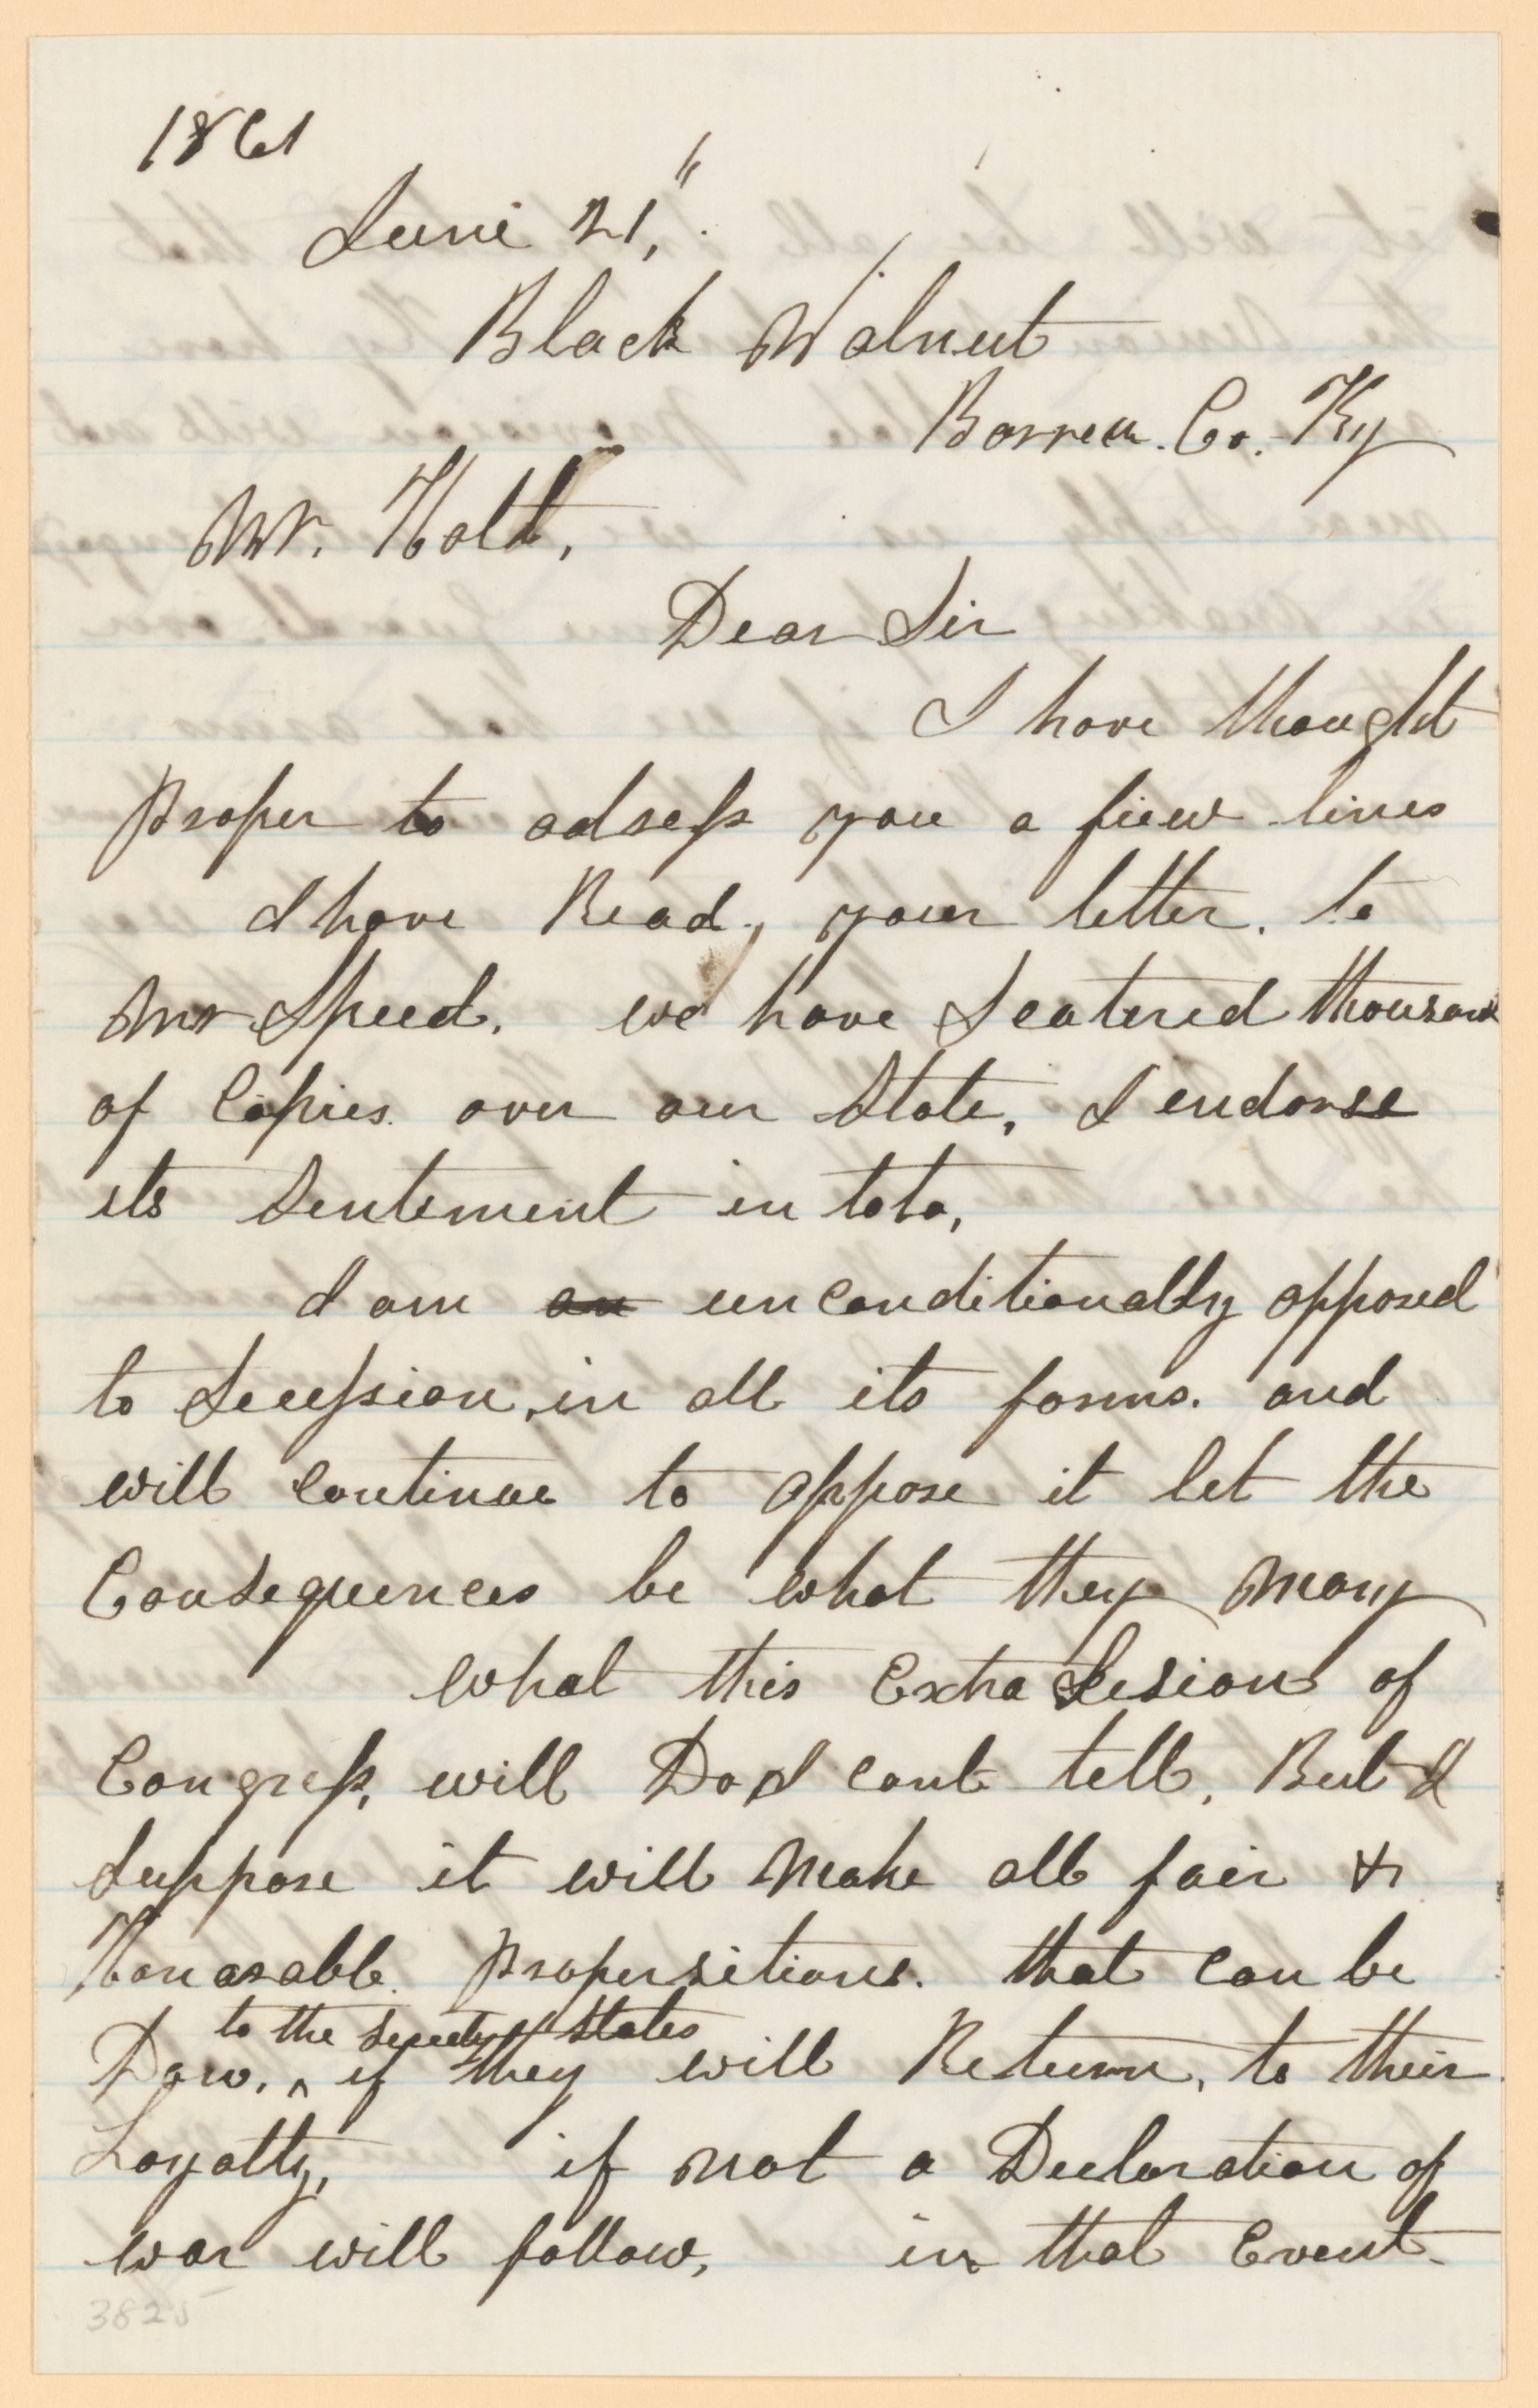 1861
June 21,"
Black Walnut
Barren. Co. Ky
Mr. Holt,
Dear Sir
I have thought
proper to adress you a fiew lines
I have Read, your letter. to
Mr Speed. we have Scatered thousand
of Copies. over our State, I endorse
its Sentiment in toto,
I am an unconditionally opposed
to Secession, in all its forms. and
will continue to oppose it let the
Consequences be what they may
what this Extra Sesion of
Congress, will Do I cant tell, But I
Suppose it will make all fair &
Honarable. propersitions. that can be
to the seceded States
Dow, ^ if they will Return, to their
Loyalty, if not a Decloration of
war will follow, in that Event.
3825